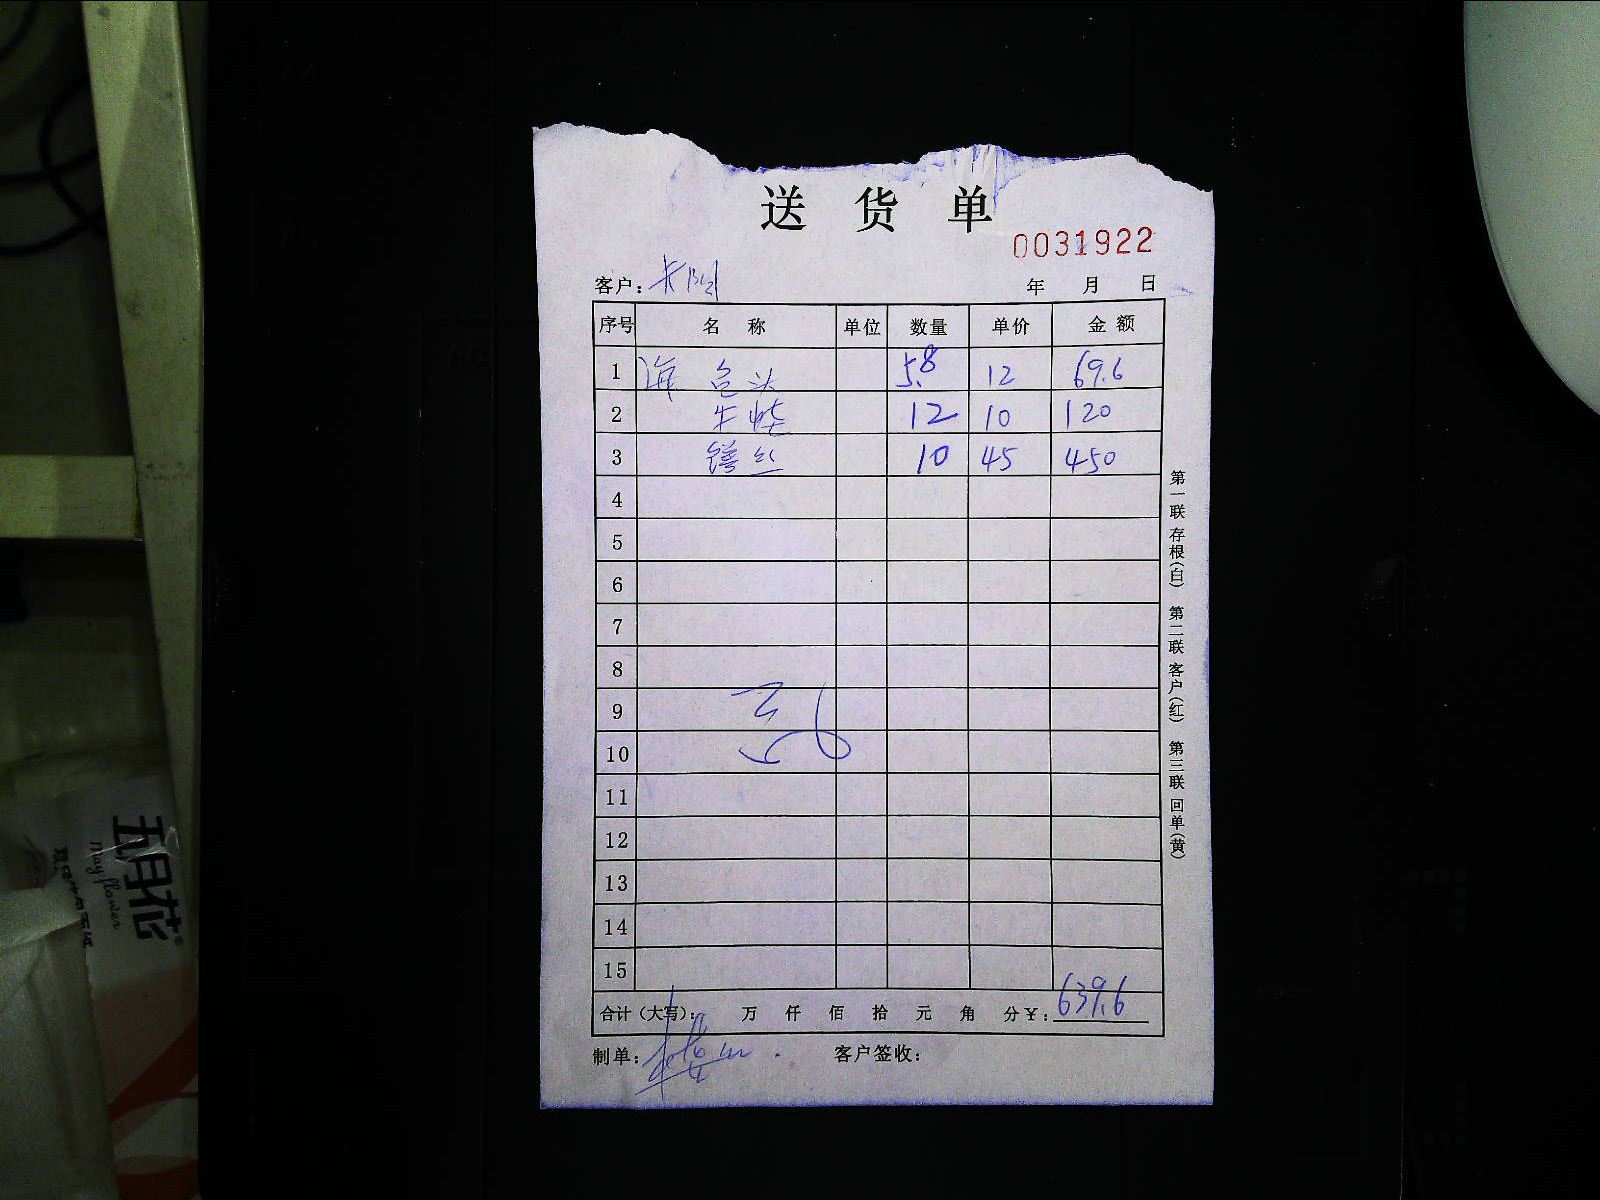 送 货 单
0031922
客户：
年 月 日
序号 名 称 单位 数量 单价 金 额
1 海 包头 5.8 12 69.6
2 12 10 120
3 丝 10 45 450
4
5
6
7
8
9
10
11
12
13
14
15
合计（大写）： 万 仟 佰 拾 元 角 分￥：639.6
制单： 客户签收：
第一联 存根（白） 第二联 客户（红） 第三联 回单（黄）
五月花
Mayflower